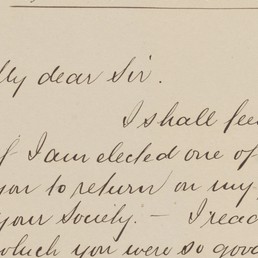 My dear Sir.
I shall fee
I am elected one of
to return on my
your Society. — I read
which you were so good